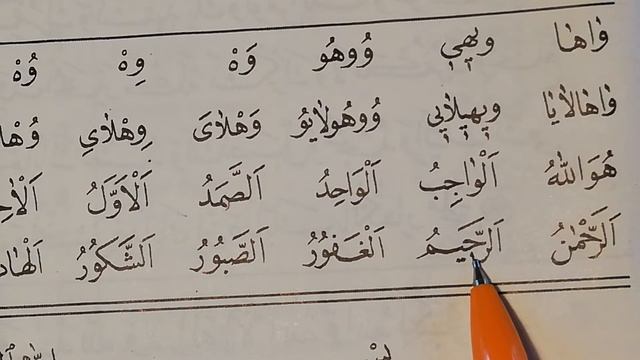 وٰاهٰا وٖيهٖي وُوهُو وَهْ وِهْ وُهْ
وٰاهٰالٰايٰا وٖيهٖيلٰايٖي وُوهُولٰايُو وَهْلٰاىَ وِهْلٰاىِ
هُوَ اللّٰهُ اَلْوٰاجِبُ اَلْوَاحِدُ اَلصَّمَدُ اَلْاَوَّلُ
اَلرَّحْمٰنُ اَلرَّحٖيمُ اَلْغَفُورُ اَلصَّبُورُ اَلشَّكُورُ